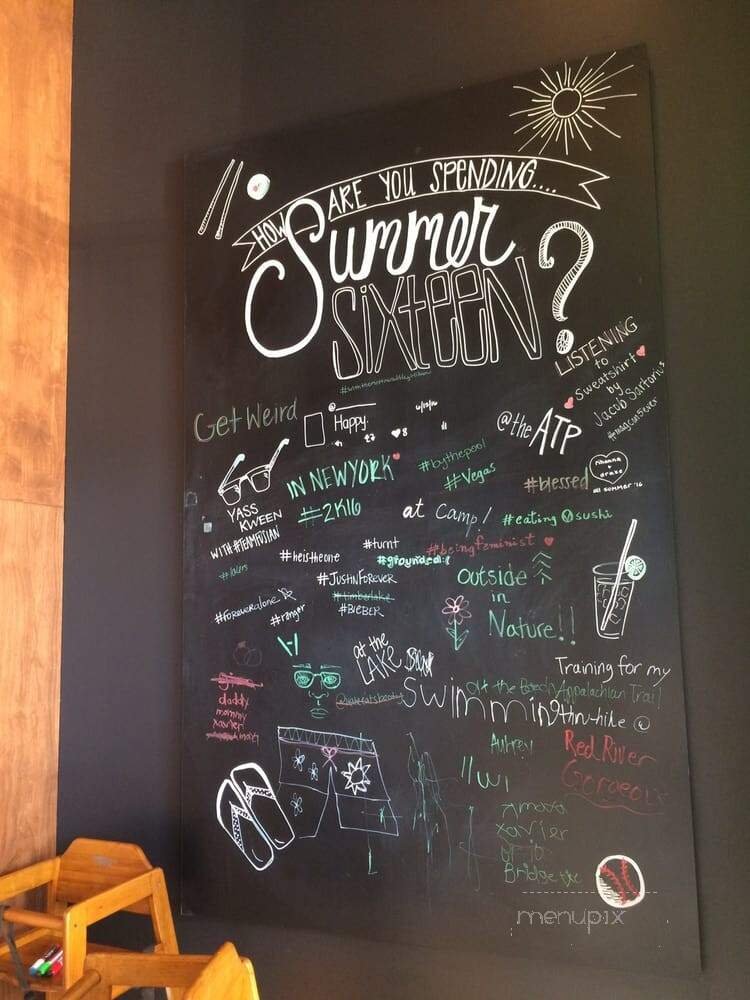 HOW ARE YOU SPENDING....
Summer
SIXTEEN?
LISTENING
to
Sweatshirt
by
Jacob Sartorius
Get Weird
@
Happy.
@the ATP
#bythepool
#Vegas
IN NEW YORK
#2K16
rihanna
+
drake
all summer '16
#blessed
YASS
KWEEN
WITH #TEAMFUSIAN
at Camp!
#eating sushi
#heistheone
#turnt
#grounded:(
#beingfeminist
#JUSTINFOREVER
#timberlake
#BIEBER
outside
in
Nature!!
#foreveralone
#ranger
at the
LAKE
daddy
mommy
xavier
Swimming
at the Beach
Training for my
Appalachian Trail
thru-hike
Aubrey
Red River
Gorgeous
xavier
Bridgette
menupix